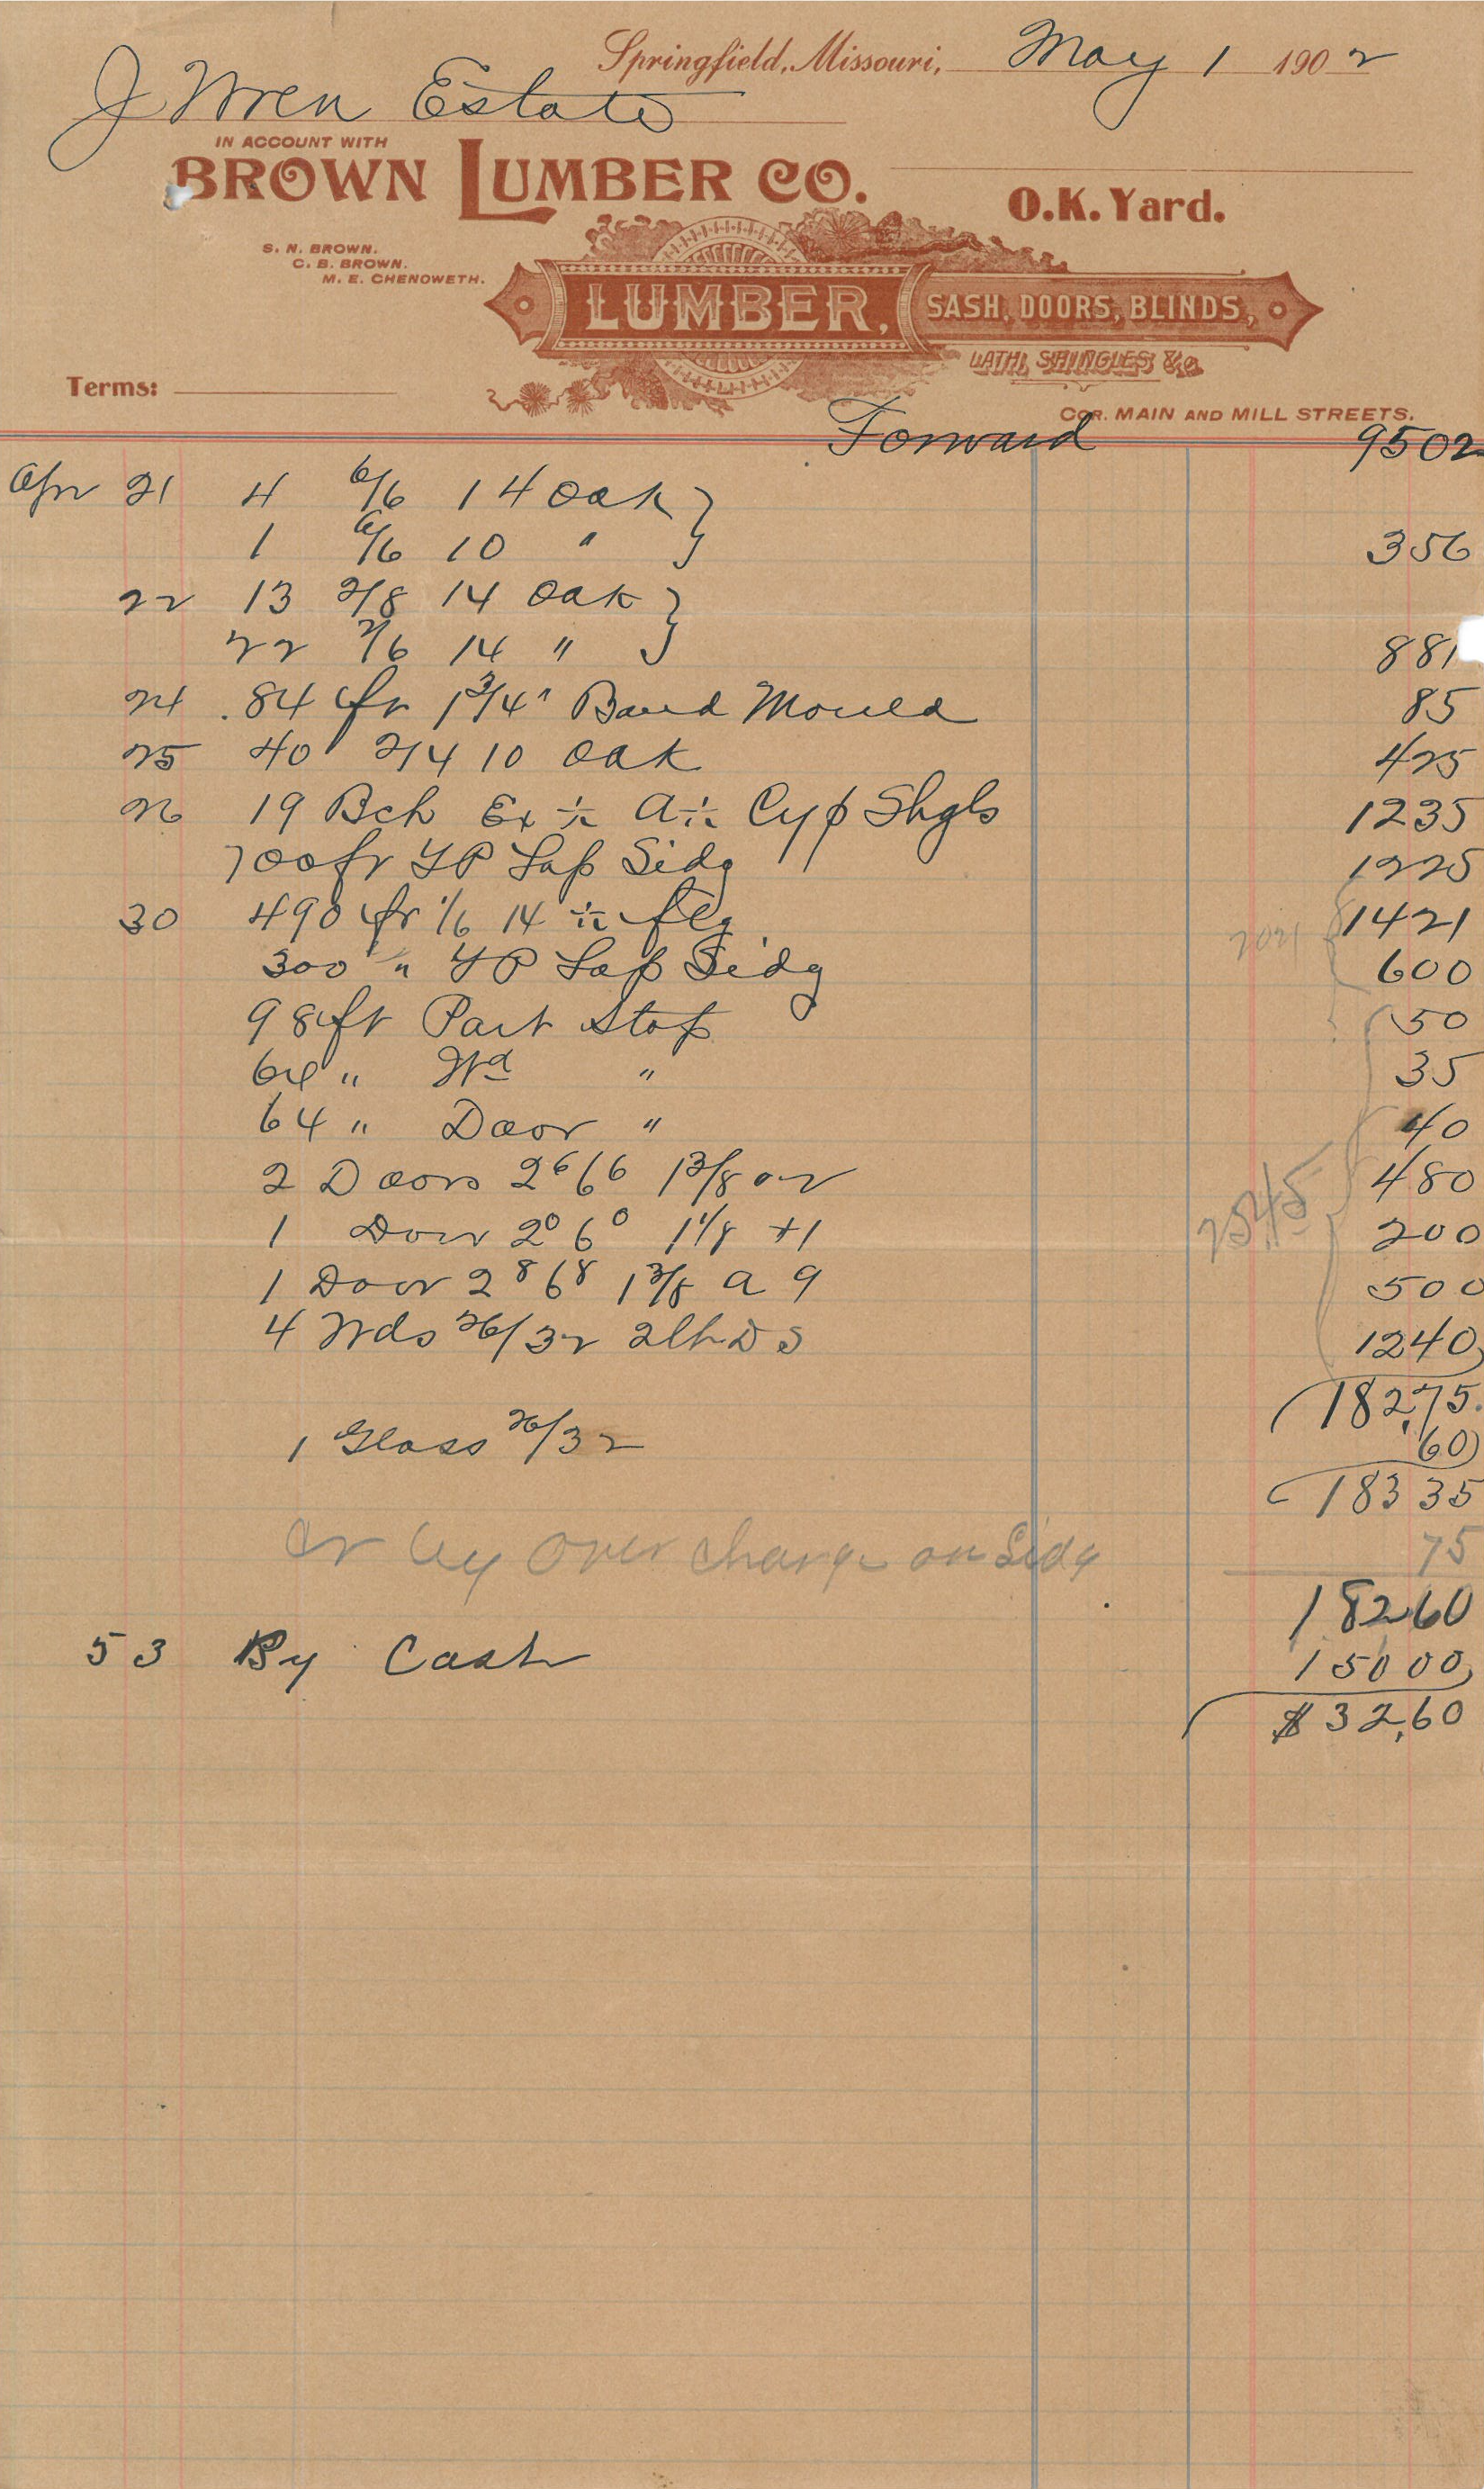 Springfield, Missouri, May 1 1902
J Wren Estate
IN ACCOUNT WITH
BROWN LUMBER CO.
O.K. Yard.
S. N. BROWN.
C. B. BROWN.
M. E. CHENOWETH.
LUMBER, SASH, DOORS, BLINDS,
LATH, SHINGLES &c.
Terms:
COR. MAIN AND MILL STREETS.
Forward 9502
Apr 21 4 6/6 14 Oak
1 6/6 10 " 356
22 13 2/8 14 Oak
22 2/6 14 " 881
24 84 ft 1 3/4" Band Mould 85
25 40 2/4 10 Oak 425
26 19 Bch Ex ÷ A ÷ Cyp Shgls 1235
700 ft YP Lap Sidg 1225
30 490 ft 1/6 14 ÷ flg 1421
2021
300 " YP Lap Sidg 600
98 ft Part Stop 50
64 " Wd " 35
64 " Door " 40
2 Doors 2 6 6 6 1 3/8 480
2545
1 Door 2 0 6 0 1 1/8 +1 200
1 Door 2 8 6 8 1 3/8 a 9 500
4 Wds 26/32 2lt DS 1240
182,75
1 Glass 26/32 60
183 35
Cr by over charge on Sidg 75
182 60
5 3 By Cash 150 00
$32,60